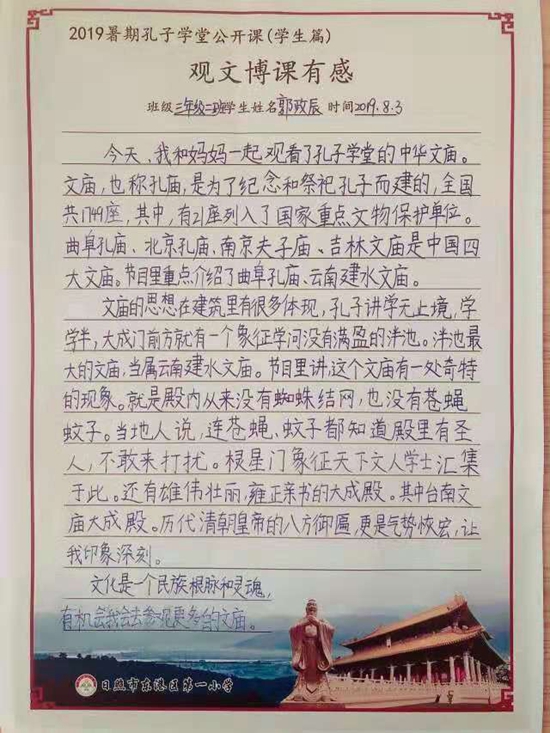 2019暑期孔子学堂公开课(学生篇)
观文博课有感
班级三年级二班学生姓名郭政辰 时间2019.8.3
今天、我和妈妈一起观看了孔子学堂的中华文庙。
文庙，也称孔庙，是为了纪念和祭祀孔子而建的，全国
共1749座，其中，有21座列入了国家重点文物保护单位。
曲阜孔庙、北京孔庙、南京夫子庙、吉林文庙是中国四
大文庙。节目里重点介绍了曲阜孔庙、云南建水文庙。
文庙的思想在建筑里有很多体现，孔子讲学无上境，学
学半，大成门前方就有一个象征学河没有满盈的泮池。泮池最
大的文庙，当属云南建水文庙。节目里讲，这个文庙有一处奇特
的现象。就是殿内从来没有蜘蛛结网，也没有苍蝇
蚊子。当地人说，连苍蝇、蚊子都知道殿里有圣
人，不敢来打扰。棂星门象征天下文人学士汇集
于此。还有雄伟壮丽，雍正亲书的大成殿。其中台南文
庙大成殿。历代清朝皇帝的八方御匾，更是气势恢宏，让
我印象深刻。
文化是一个民族根脉和灵魂，
有机会我会去参观更多的文庙。
日照市东港区第一小学